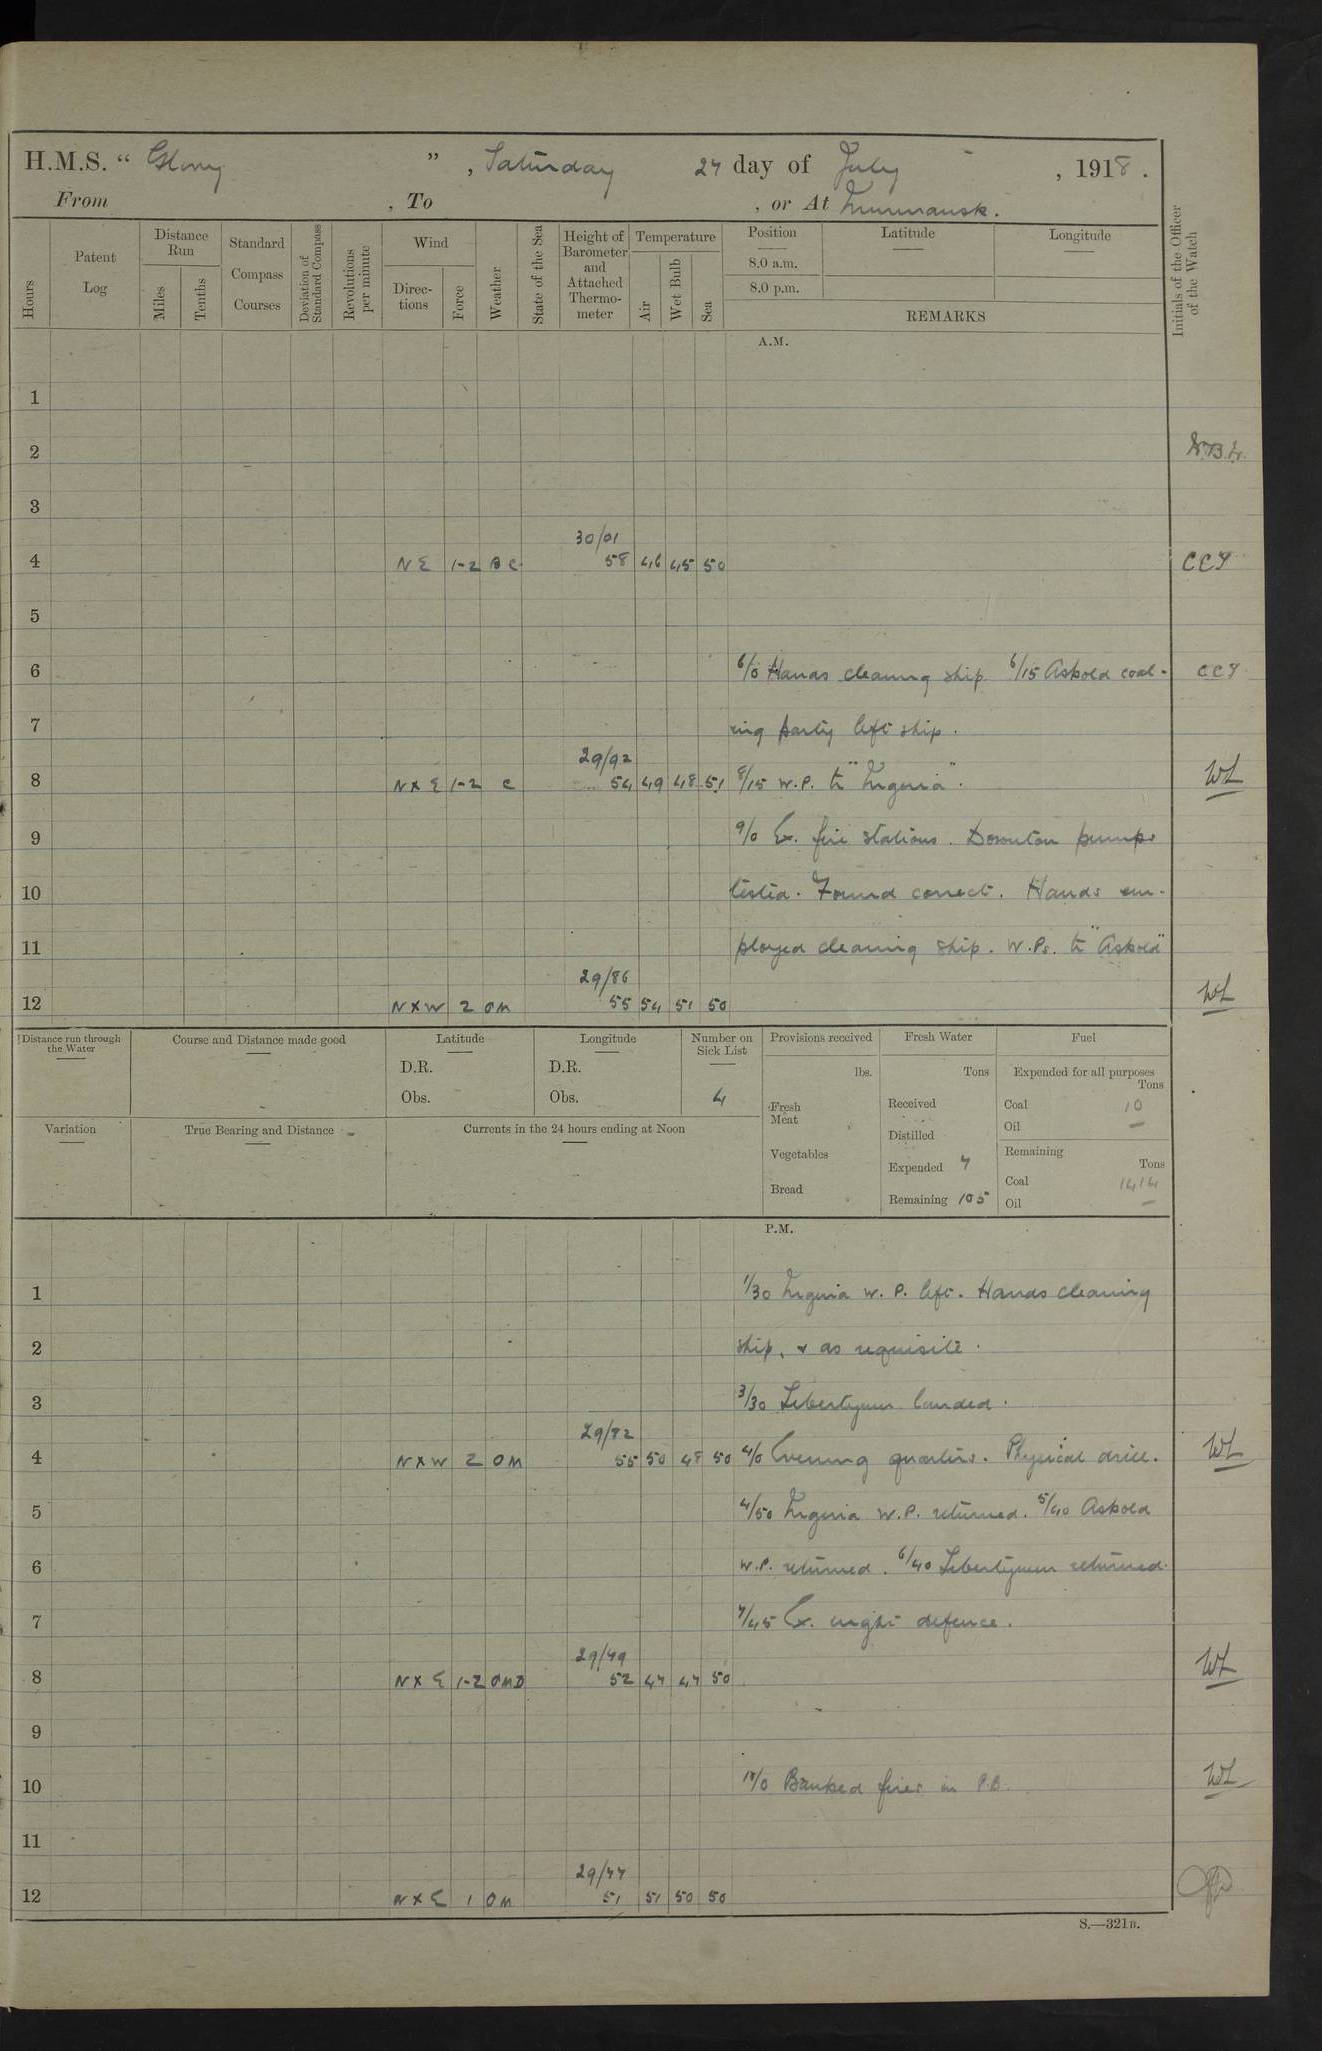 H.M.S. “ Glory ” , Saturday 27 day of July , 1918 .
From , To , or At Murmansk .
Hours
Patent Log
Distance Run
Miles
Tenths
Standard Compass Courses
Deviation of Standard Compass
Revolutions per minute
Wind
Directions
Force
Weather
State of the Sea
Height of Barometer and Attached Thermometer
Temperature
Air
Wet Bulb
Sea
Position
8.0 a.m.
8.0 p.m.
Latitude
Longitude
REMARKS
Initials of the Officer of the Watch
A.M.
1
2
3
30/01
4 NE 1-2 BC 58 46 45 50
5
6 6/0 Hands cleaning ship 6/15 Askold coal-
7 ing party left ship .
29/92
8 NXE 1-2 C 54 49 48 51 8/15 W.P. to " Nigeria " . WL
9 9/0 Ex. fire stations . Downton pumps
10 tested . Found correct . Hands em-
11 ployed cleaning ship . W.Ps. to "Askold"
29/86
12 NXW 2 OM 55 54 51 50 WL
Distance run through the Water
Course and Distance made good
Latitude
D.R.
Obs.
Longitude
D.R.
Obs.
Number on Sick List
4
Provisions received
lbs.
Fresh Meat
Vegetables
Bread
Fresh Water
Tons
Received
Distilled
Expended 7
Remaining 105
Fuel
Expended for all purposes
Tons
Coal 10
Oil —
Remaining
Tons
Coal 1414
Oil —
Variation
True Bearing and Distance
Currents in the 24 hours ending at Noon
P.M.
1 1/30 Nigeria W.P. left . Hands cleaning
2 ship , & as requisite .
3 3/30 Libertymen landed .
29/82
4 NXW 2 OM 55 50 48 50 4/0 Evening quarters . Physical drill . WL
5 4/50 Nigeria W.P. returned . 5/40 Askold
6 W.P. returned . 6/40 Libertymen returned .
7 7/45 Ex. night defence .
29/79
8 NXE 1-2 OMD 52 47 47 50 WL
9
10 10/0 Banked fires in P.B. WL
11
29/77
12 NXE 1 OM 51 51 50 50
S.—321B.